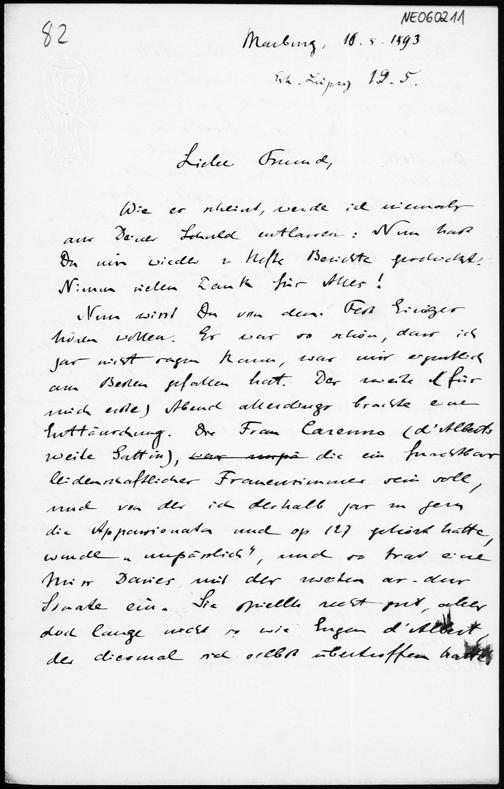 NE060211
82
Marburg, 16.5.1893
Erh. Leipzig 19.5.
Lieber Freund,
Wie es scheint, werde ich niemals
aus Deiner Schuld entlassen: Nun hast
Du mir wieder 2 Hefte Berichte geschickt.
Nimm vielen Dank für Alles!
Nun wirst Du von dem Fest Einiges
hören wollen. Es war so schön, dass ich
gar nicht sagen kann, was mir eigentlich
am Besten gefallen hat. Der zweite (für
mich erste) Abend allerdings brachte eine
Enttäuschung. Die Frau Carenno (d'Alberts
zweite Gattin), war unpä die ein furchtbar
leidenschaftliches Frauenzimmer sein soll,
und von der ich deshalb gar zu gern
die Appassionata und op 127 gehört hätte,
wurde „unpässlich", und so trat eine
Miss Davies mit der as-dur
Sonate ein. Sie spielte recht gut, aber
doch lange nicht so wie Eugen d'Albert,
der diesmal sich selbst übertroffen hatte